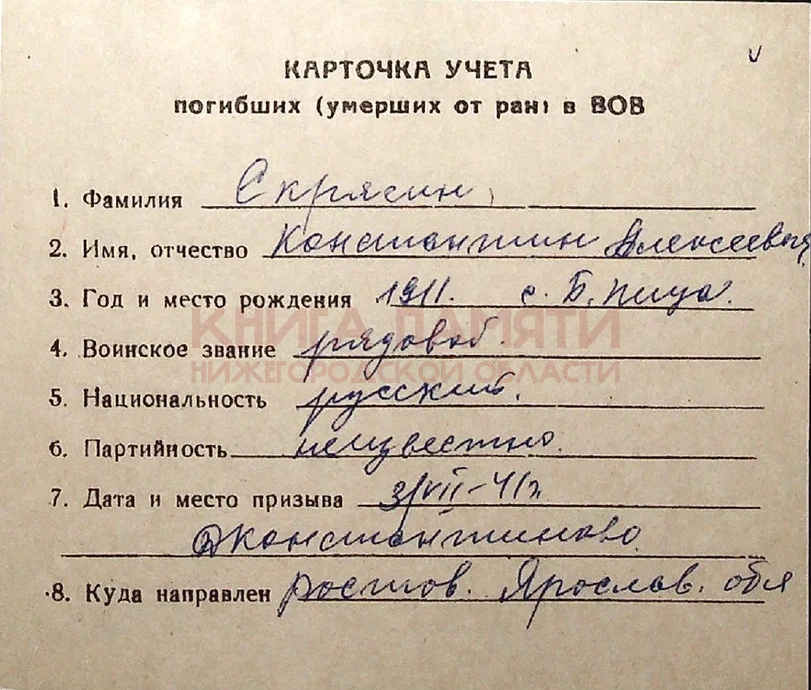 КАРТОЧКА УЧЕТА
погибших (умерших от ран) в ВОВ
1. Фамилия Скрясин
2. Имя, отчество Константин Алексеевич
3. Год и место рождения 1911. с. Б. Пица.
4. Воинское звание рядовой.
КНИГА ПАМЯТИ
НИЖЕГОРОДСКОЙ ОБЛАСТИ
5. Национальность русский.
6. Партийность неизвестно.
7. Дата и место призыва 3/VII-41г.
Дконстантиново
8. Куда направлен Ростов. Ярослав. обл